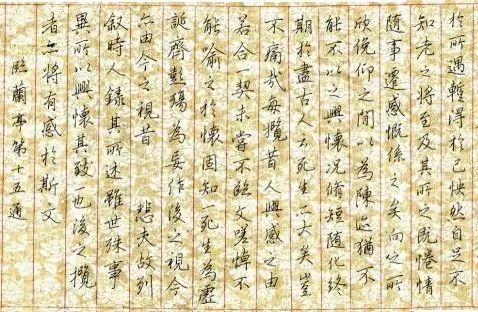 於所遇暫得於己怏然自足不
知老之將至及其所之既惓情
隨事遷感慨係之矣向之所
欣俛仰之間以為陳迹猶不
能不以之興懷況脩短隨化終
期於盡古人云死生亦大矣豈
不痛哉每攬昔人興感之由
若合一契未嘗不臨文嗟悼不
能喻之於懷固知一死生為虛
誕齊彭殤為妄作後之視今
亦由今之視昔 悲夫故列
叙時人錄其所述雖世殊事
異所以興懷其致一也後之攬
者亦將有感於斯文
臨蘭亭第十五通